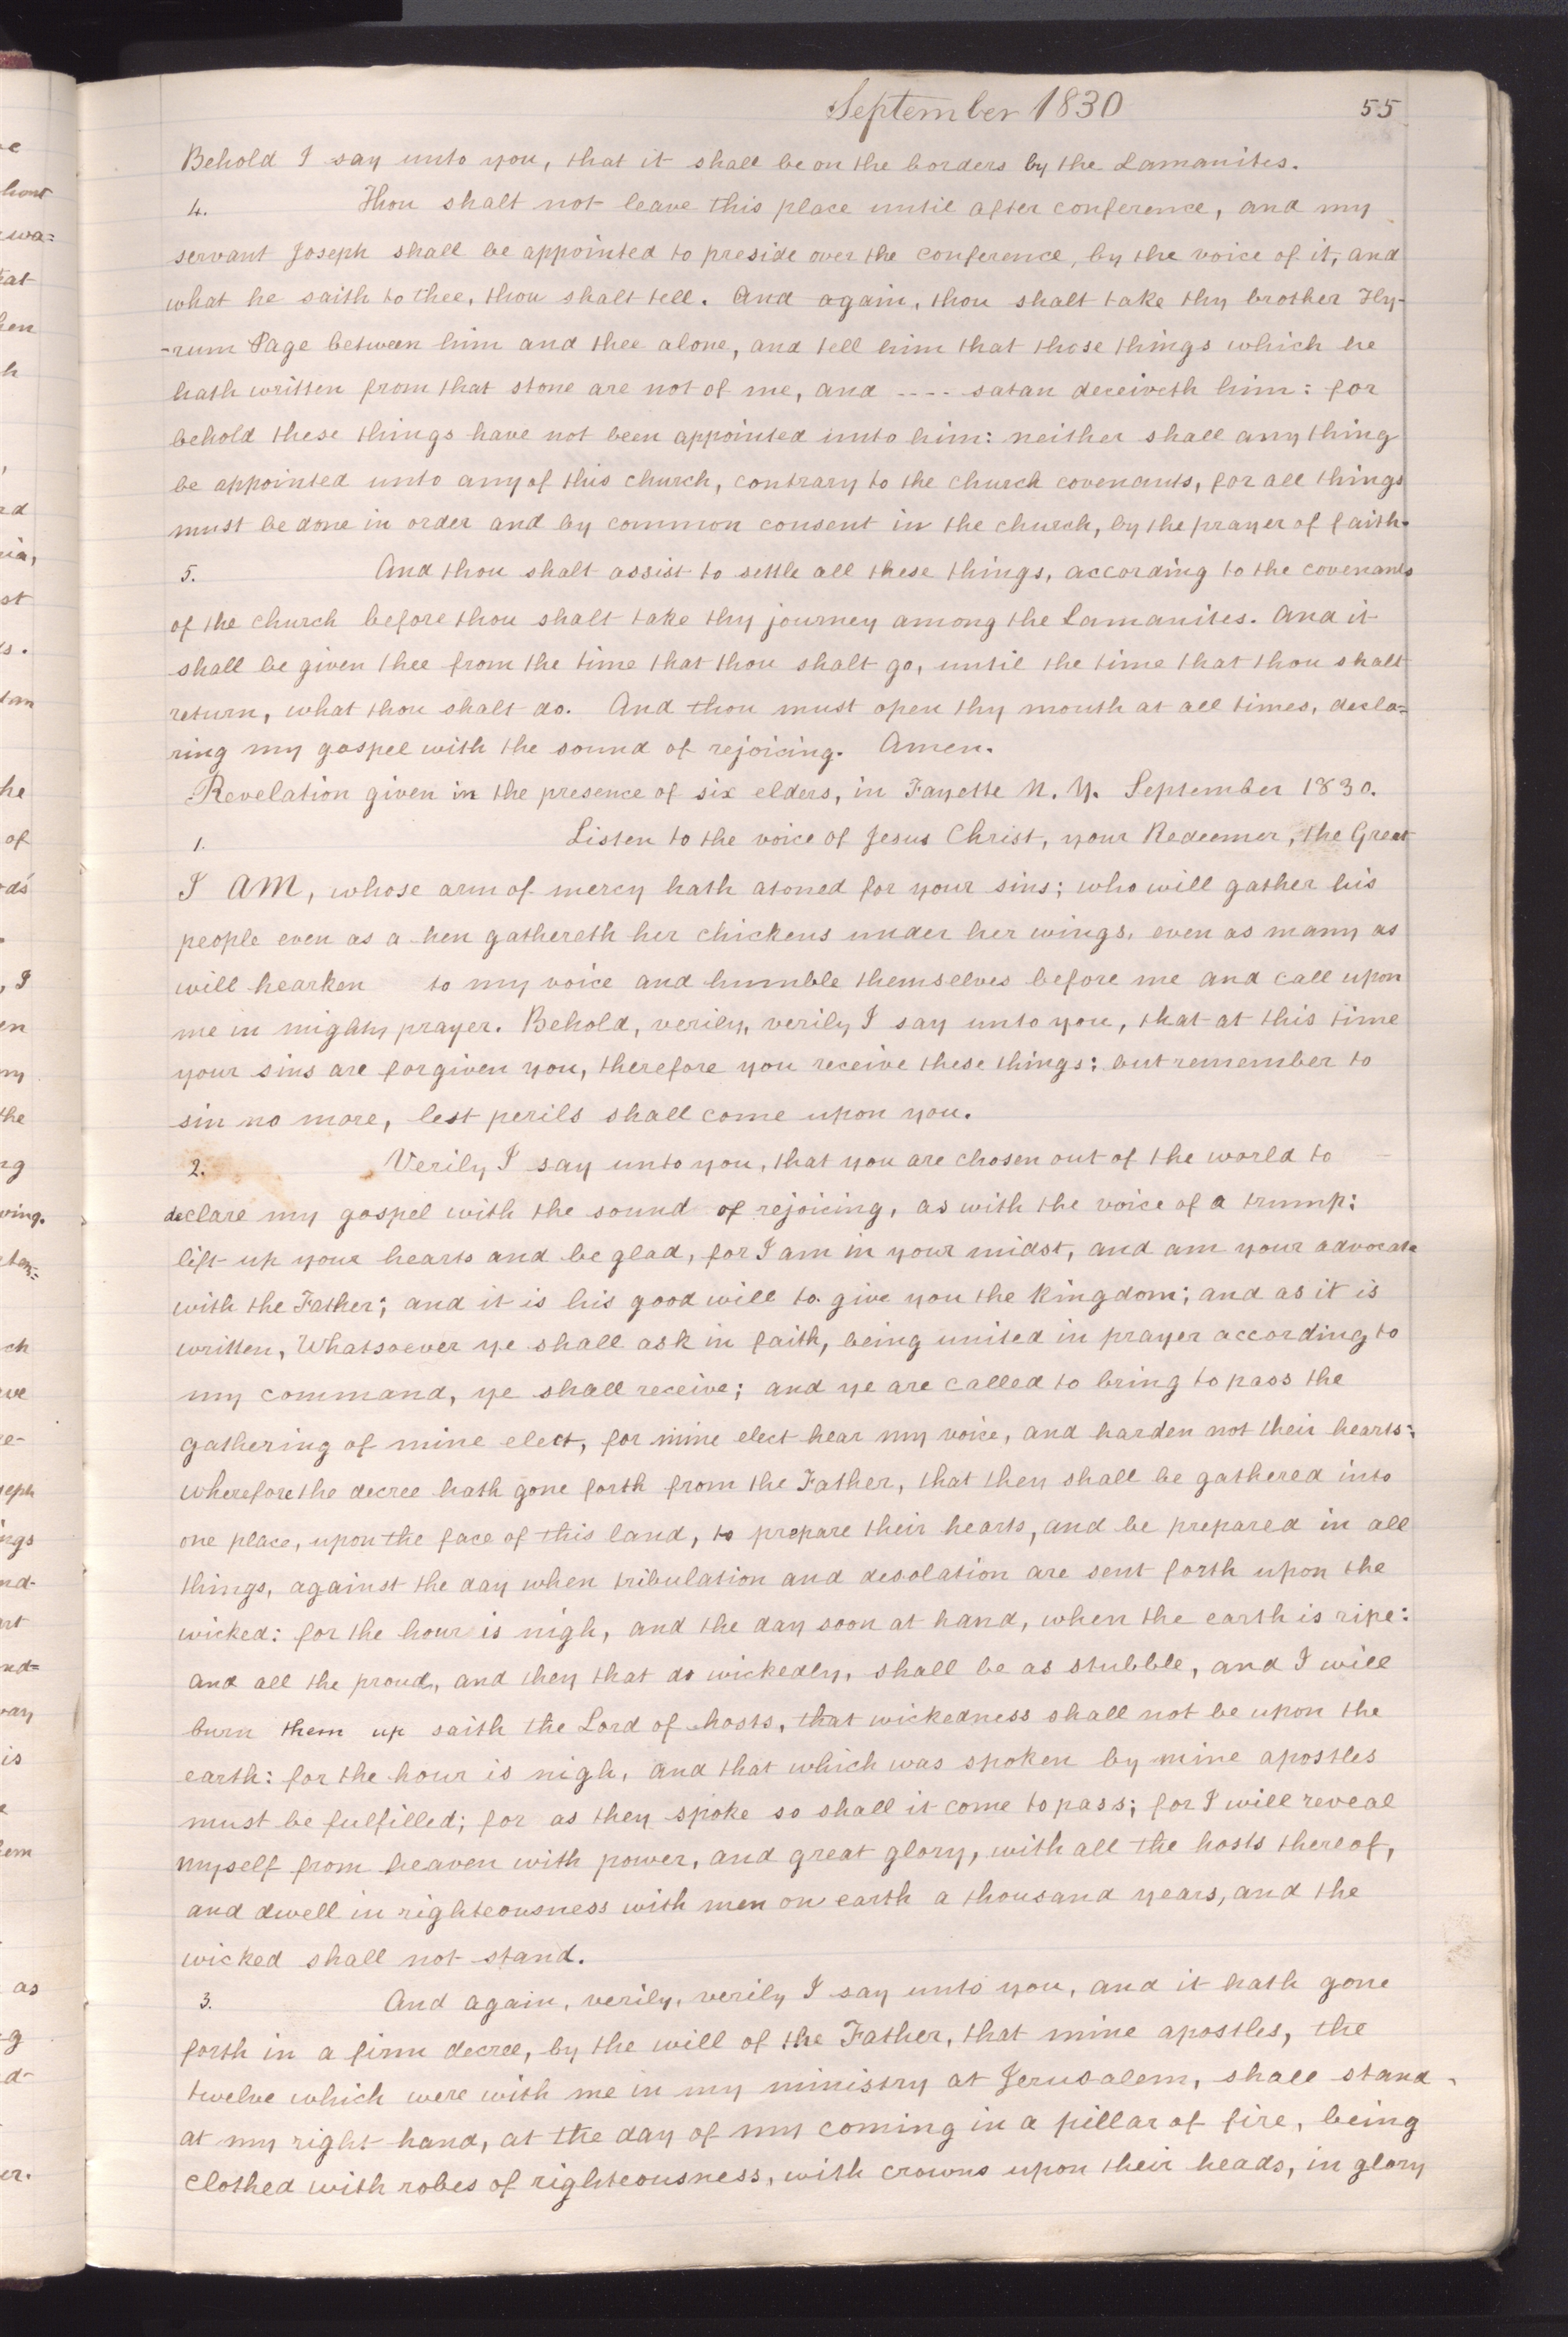 September 1830
55
Behold I say unto you, that it shall be on the borders by the Lamanites.
4. Thou shalt not leave this place until after conference, and my
servant Joseph shall be appointed to preside over the conference, by the voice of it, and
what he saith to thee, thou shalt tell. And again, thou shalt take thy brother Hy-
-rum Page between him and thee alone, and tell him that those things which he
hath written from that stone are not of me, and ---- satan deceiveth him: for
behold these things have not been appointed unto him: neither shall anything
be appointed unto any of this church, contrary to the church covenants, for all things
must be done in order and by common consent in the church, by the prayer of faith.
5. And thou shalt assist to settle all these things, according to the covenants
of the church before thou shalt take thy journey among the Lamanites. And it
shall be given thee from the time that thou shalt go, until the time that thou shalt
return, what thou shalt do. And thou must open thy mouth at all times, decla=
ring my gospel with the sound of rejoicing. Amen.
Revelation given in the presence of six elders, in Fayette N. Y. September 1830.
1. Listen to the voice of Jesus Christ, your Redeemer, the Great
I AM, whose arm of mercy hath atoned for your sins; who will gather his
people even as a hen gathereth her chickens under her wings, even as many as
will hearken to my voice and humble themselves before me and call upon
me in mighty prayer. Behold, verily, verily I say unto you, that at this time
your sins are forgiven you, therefore you receive these things: but remember to
sin no more, lest perils shall come upon you.
2. Verily I say unto you, that you are chosen out of the world to
declare my gospel with the sound of rejoicing, as with the voice of a trump:
lift up your hearts and be glad, for I am in your midst, and am your advocate
with the Father; and it is his good will to give you the kingdom; and as it is
written, Whatsoever ye shall ask in faith, being united in prayer according to
my command, ye shall receive; and ye are called to bring to pass the
gathering of mine elect, for mine elect hear my voice, and harden not their hearts:
wherefore the decree hath gone forth from the Father, that they shall be gathered into
one place, upon the face of this land, to prepare their hearts, and be prepared in all
things, against the day when tribulation and desolation are sent forth upon the
wicked: for the hour is nigh, and the day soon at hand, when the earth is ripe:
and all the proud, and they that do wickedly, shall be as stubble, and I will
burn them up saith the Lord of hosts, that wickedness shall not be upon the
earth: for the hour is nigh, and that which was spoken by mine apostles
must be fulfilled; for as they spoke so shall it come to pass; for I will reveal
myself from heaven with power, and great glory, with all the hosts thereof,
and dwell in righteousness with men on earth a thousand years, and the
wicked shall not stand.
3. And again, verily, verily I say unto you, and it hath gone
forth in a firm decree, by the will of the Father, that mine apostles, the
twelve which were with me in my ministry at Jerusalem, shall stand
at my right hand, at the day of my coming in a pillar of fire, being
clothed with robes of righteousness, with crowns upon their heads, in glory